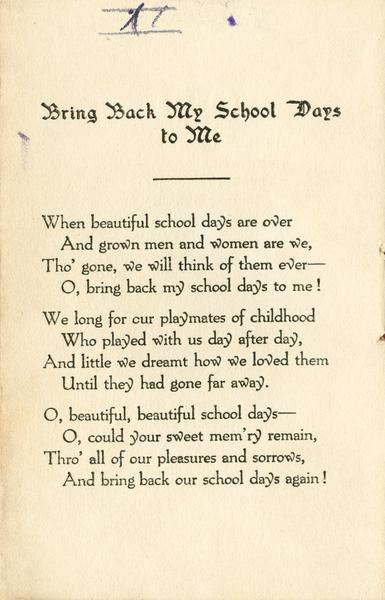 Bring Back My School Days
to Me
When beautiful school days are over
And grown men and women are we,
Tho' gone, we will think of them ever—
O, bring back my school days to me!
We long for our playmates of childhood
Who played with us day after day,
And little we dreamt how we loved them
Until they had gone far away.
O, beautiful, beautiful school days—
O, could your sweet mem'ry remain,
Thro' all of our pleasures and sorrows,
And bring back our school days again!